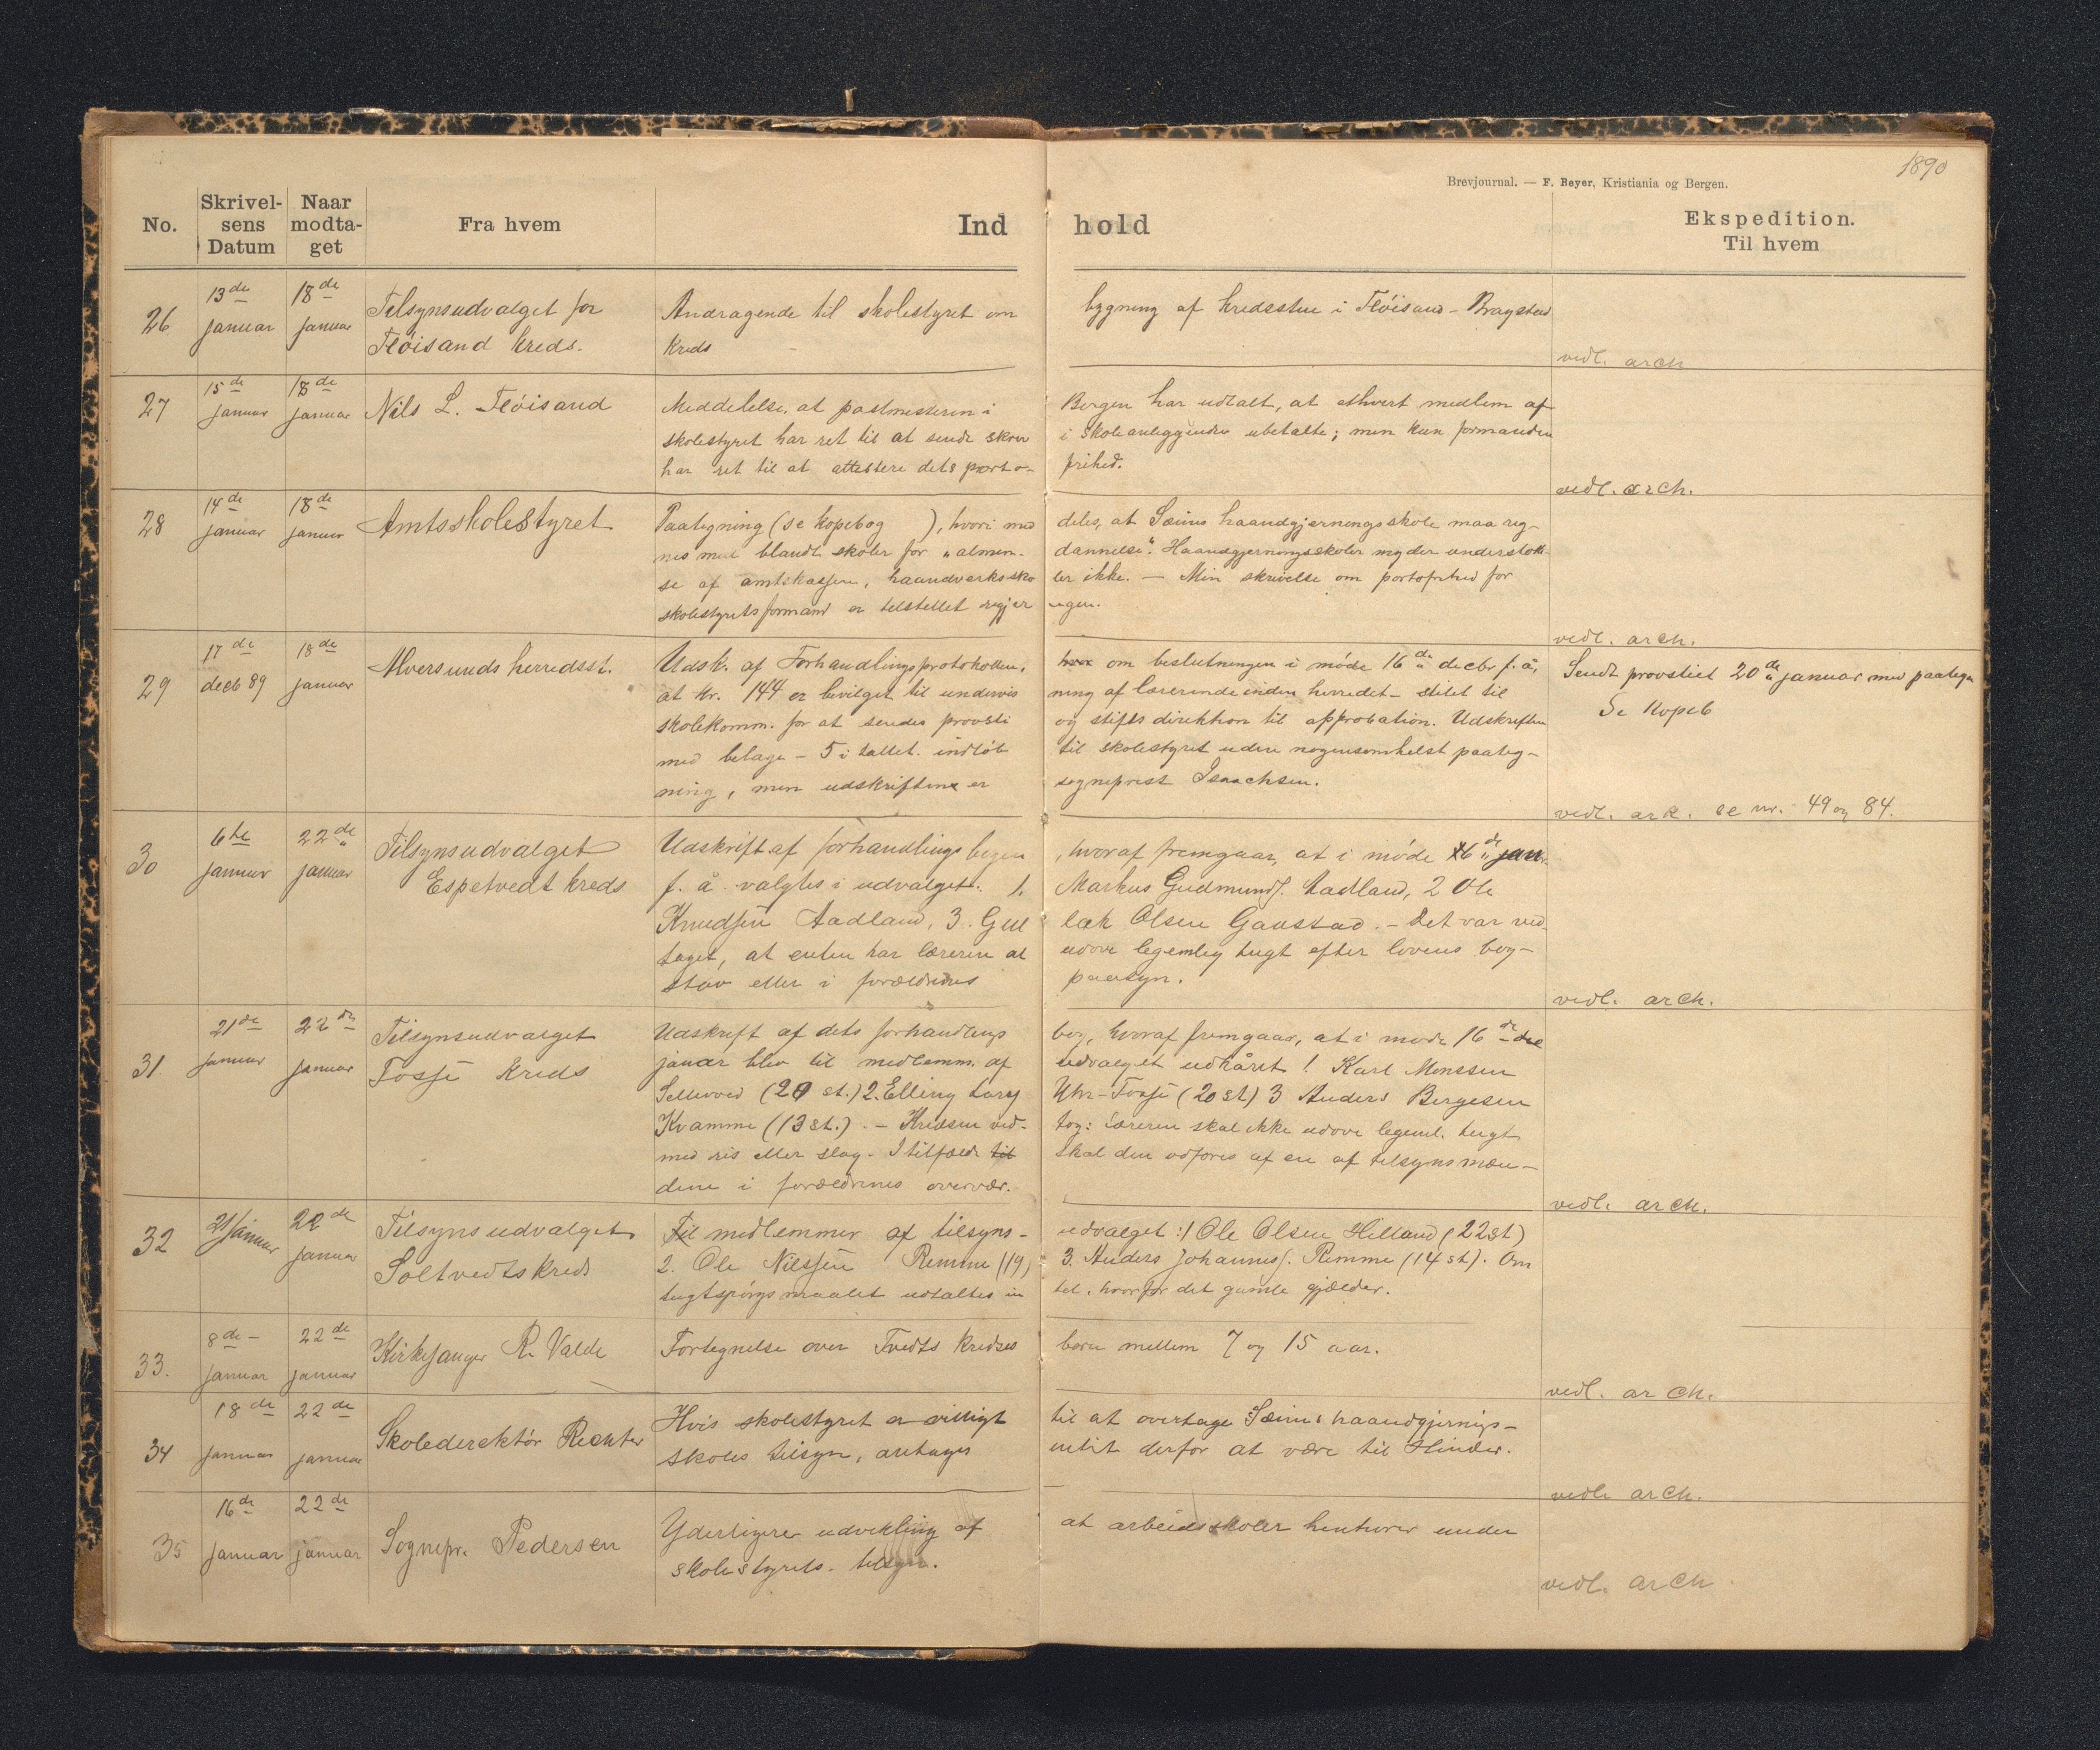 1890
Brevjournal. — F. Beyer, Kristiania og Bergen.
No. Skrivelsens Datum Naar modtaget Fra hvem Ind hold Ekspedition. Til hvem
26 13de januar 18de januar Tilsynsudvalget for Fløisand kreds.
Andragende til skolestyret om bygning af kredsstue i Fløisand - Bragstad
kreds
vedl. arch
27 15de januar 18de januar Nils L. Fløisand
Meddelelse, at postmesteren i Bergen har udtalt, at ethvert medlem af
skolestyret har ret til at sende skriv i skoleanliggender ubetalte; men kun formanden
har ret til at attestere dets porto- frihed.
vedl. arch.
28 14de januar 18de januar Amtsskolestyret
Paategning (se kopebog ), hvori med deles, at Sæims haandgjerningsskole maa reg-
nes med blandt skoler for "almen- dannelse". Haandgjerningsskoler nyder understøttel-
se af amtskassen, haandverkssko ler ikke. — Min skrivelse om portofrihed for
skolestyrets formand er tilstillet regjer ingen.
vedl. arch.
29 17de decb 89 18de januar Alversunds herredsst.
Udsk. af Forhandlingsprotokollen, om beslutningen i møde 16de decbr f. å,
at kr. 144 er bevilget til undervis ning af lærerinde inden herredet - stilet til
skolekomm. for at sendes provsti og stiftsdirektion til approbation. Udskriften
med belage - 5 i tallet. indløb til skolestyret uden nogensomhelst paateg-
ning, men udskriftene er sogneprest Isaachsen.
Sendt provstiet 20de januar med paategn
Se Kopeb
vedl. ark. se nr. 49 og 84.
30 6te januar 22de januar Tilsynsudvalget Espetvedt kreds
Udskrift af forhandlings bogen, hvoraf fremgaar, at i møde 16de jan.
f. å. valgtes i udvalget: 1. Markus Gudmunds. Aadland, 2 Ole
Knudsen Aadland, 3. Gul lak Olsen Gaustad. - Det var ved-
taget, at enten har læreren at udøve legemlig tugt efter lovens bog-
stav eller i forældrenes paasyn.
vedl. arch.
31. 21de januar 22de januar Tilsynsudvalget Fosse kreds
Udskrift af dets forhandlings bog, hvoraf fremgaar, at i møde 16de
januar blev til medlemm. af udvalget udkåret 1. Karl Monssen
Sellevold (20 st.) 2. Elling Lars Uhr-Fosse (20 st) 3 Anders Bergesen
Kvamme (13 st.). - Kredsen ved- tog: Læreren skal ikke udøve legeml. tugt
med ris eller slag. I tilfælde til skal den udføres af en af tilsynsmæn-
dene i forældrenes overvær.
vedl. arch.
32 21/januar 22de januar Tilsynsudvalget Soltvedts kreds
Til medlemmer af tilsyns- udvalget: 1 Ole Olsen Hilland (22 st)
2. Ole Nilssen Remme (19) 3. Anders Johanness. Remme (14 st). Om
tugtspørgsmaalet udtaltes in tet, hvorfor det gamle gjælder.
33. 8de januar 22de januar Kirkesanger R. Valde
Fortegnelse over Tvedts kredses børn mellem 7 og 15 aar.
vedl. arch.
34 18de januar 22de januar Skoledirektør Richter
Hvis skolestyret er villigt til at overtage Sæims haandgjernings-
skoles tilsyn, antages intet derfor at være til Hinder.
vedl. arch.
35 16de januar 22de januar Sognepr. Pedersen
Yderligere udvikling af at arbeidsskoler henhører under
skolestyrets tilsyn.
vedl. arch